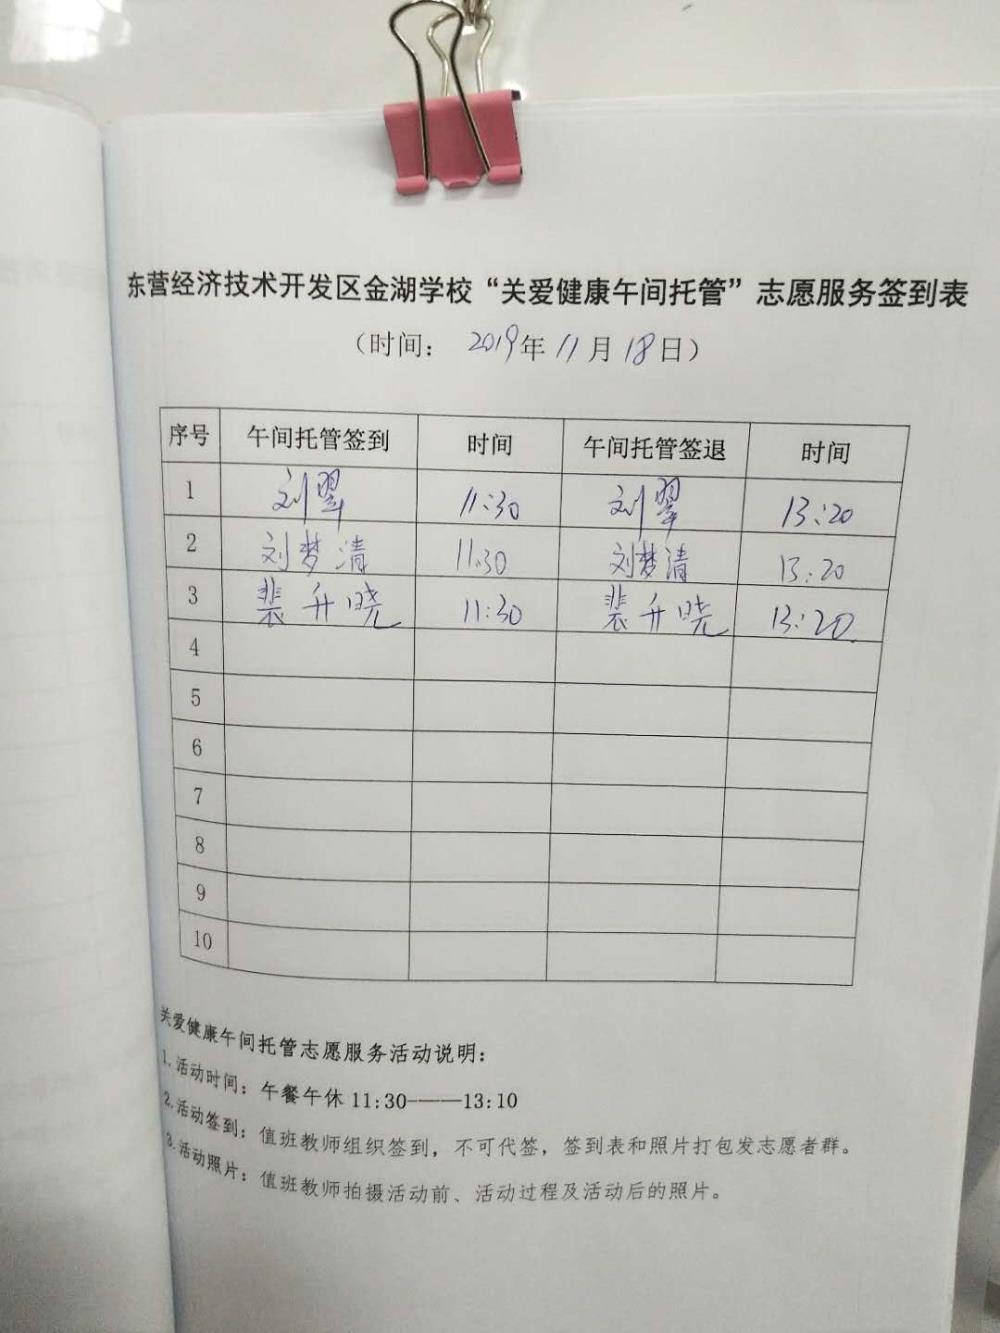 东营经济技术开发区金湖学校“关爱健康午间托管”志愿服务签到表
（时间： 2019年 11 月 18 日）
序号 午间托管签到 时间 午间托管签退 时间
1 刘翠 11:30 刘翠 13:20
2 刘梦清 11:30 刘梦清 13:20
3 裴升晓 11:30 裴升晓 13:20
4
5
6
7
8
9
10
关爱健康午间托管志愿服务活动说明：
1.活动时间：午餐午休 11:30——13:10
2.活动签到：值班教师组织签到，不可代签，签到表和照片打包发志愿者群。
3.活动照片：值班教师拍摄活动前、活动过程及活动后的照片。